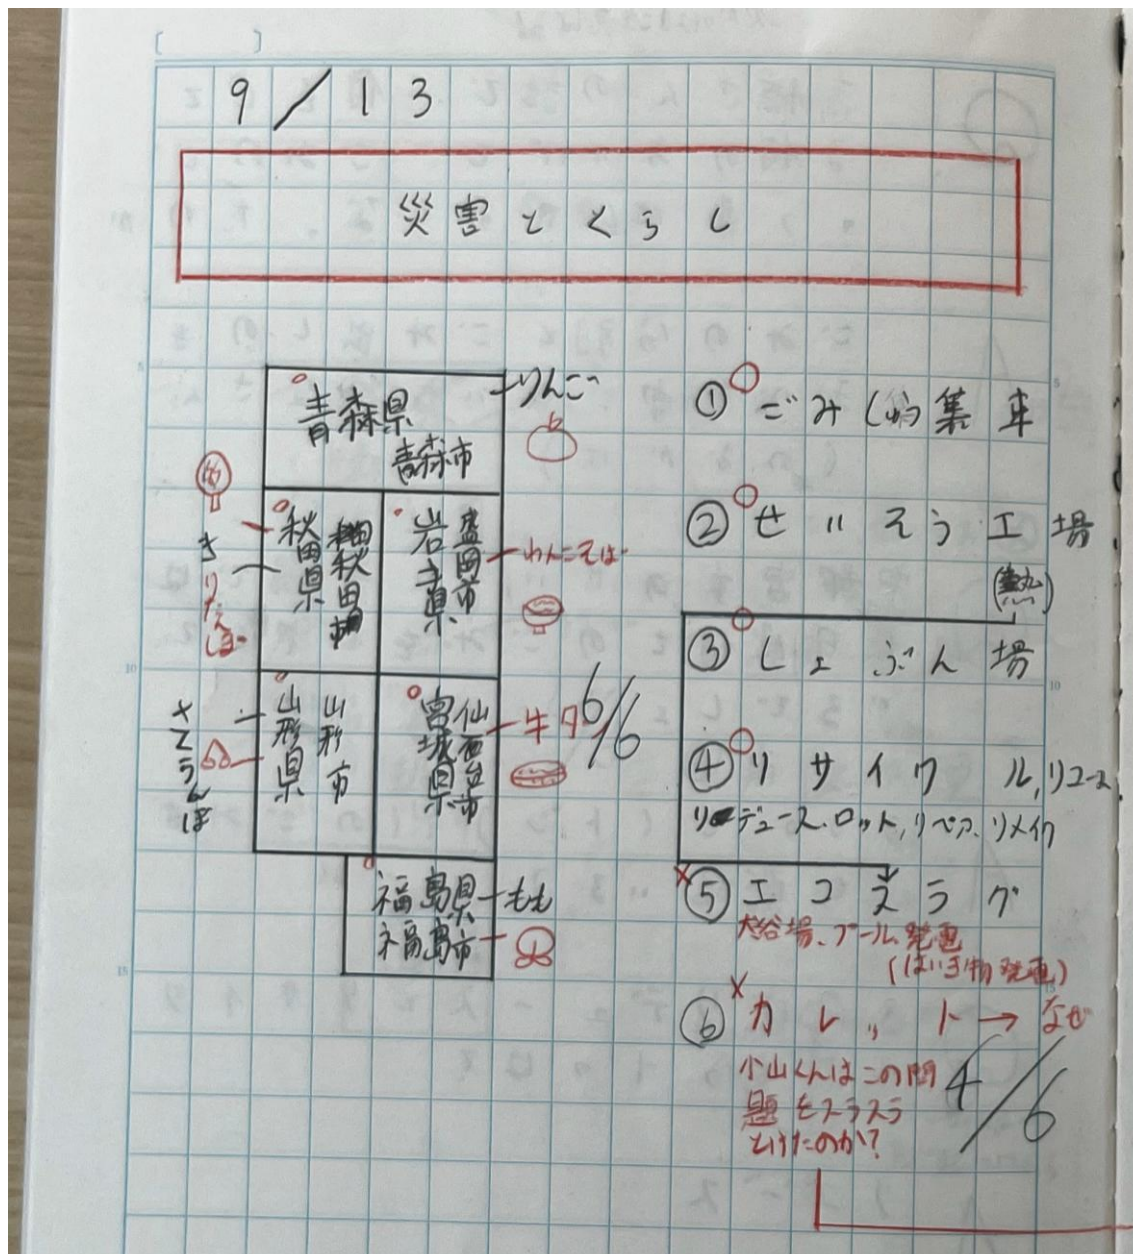 9/13
災害とくらし
青森県
青森市
りんご
秋田県
秋田市
きりたんぽ
岩手県
盛岡市
わんこそば
山形県
山形市
さくらんぼ
宮城県
仙台市
牛タン
6/6
福島県
福島市
もも
①ごみしゅう集車
②せいそう工場
(熱)
③しょぶん場
④リサイクル,リユース
リデュース.ロット,リペア.リメイク
⑤エコスラグ
プール,発電
(はいき物発電)
⑥カレット→なぜ
小山くんはこの問
題をスラスラ
とけたのか?
4/6
5
10
15
5
10